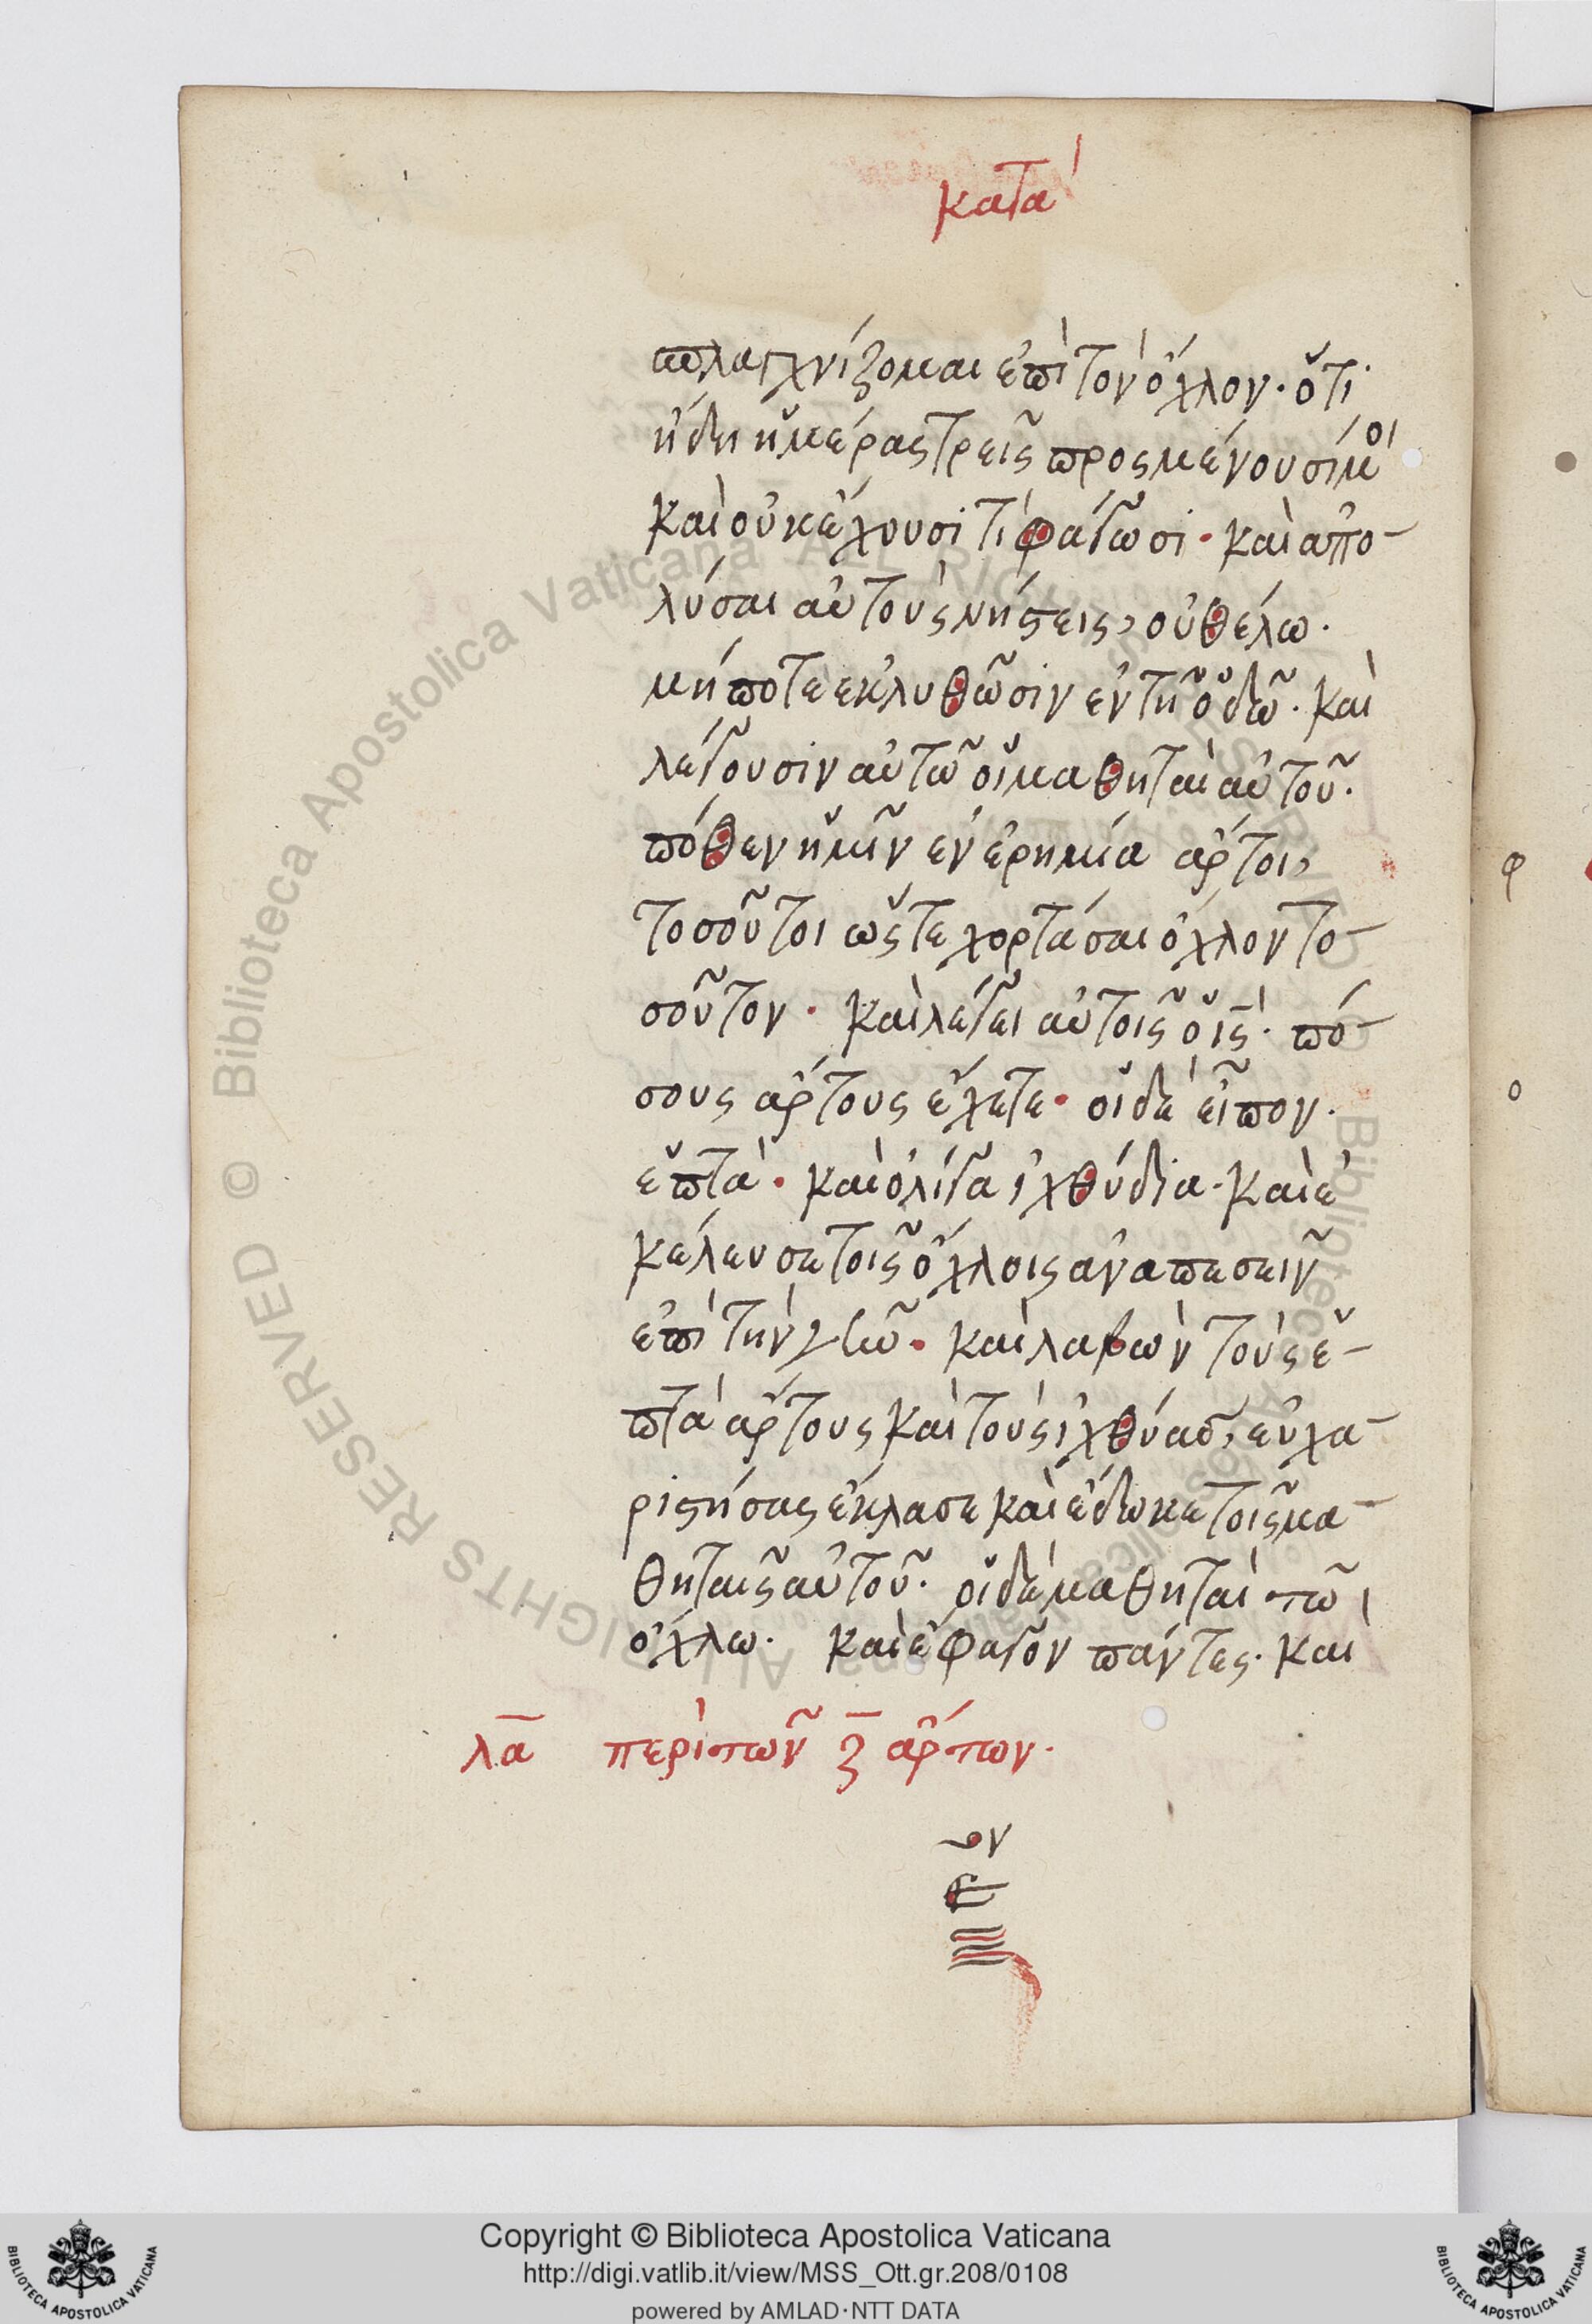 κατὰ
πλαγχνίζομαι ἐπὶ τὸν ὄχλον· ὅτι
ἤδη ἡμέρας τρεῖς προσμένουσί μοι
καὶ οὐκ ἔχουσι τί φάγωσι· καὶ ἀπο-
λύσαι αὐτοὺς νήστεις, οὐ θέλω·
μήποτε ἐκλυθῶσιν ἐν τῆ ὁδῶ· καὶ
λέγουσιν αὐτῶ οἱ μαθηταὶ αὐτοῦ·
πόθεν ἡμῖν ἐν ἐρημία ἄρτοι,
τοσοῦτοι ὥστε χορτάσαι ὄχλον το-
σοῦτον· καὶ λέγει αὐτοῖς ὁ ις· πό-
σους ἄρτους ἔχετε· οἱ δὲ εἶπον·
ἑπτὰ· καὶ ὀλίγα ἰχθύδια· καὶ ἐ
κέλευσε τοῖς ὄχλοις ἀναπεσεῖν
ἐπὶ τὴν γῆν· καὶ λαβὼν τοὺς ἑ-
πτὰ ἄρτους καὶ τοὺς ἰχθύας, εὐχα-
ριστήσας ἔκλασε καὶ ἔδωκε τοῖς μα-
θηταῖς αὐτοῦ· οἱ δὲ μαθηταὶ τῶ
ὄχλω· καὶ ἔφαγον πάντες· καὶ
λα περὶ τῶν ζ ἄρτων·
Copyright © Biblioteca Apostolica Vaticana
http://digi.vatlib.it/view/MSS_Ott.gr.208/0108
powered by AMLAD·NTT DATA